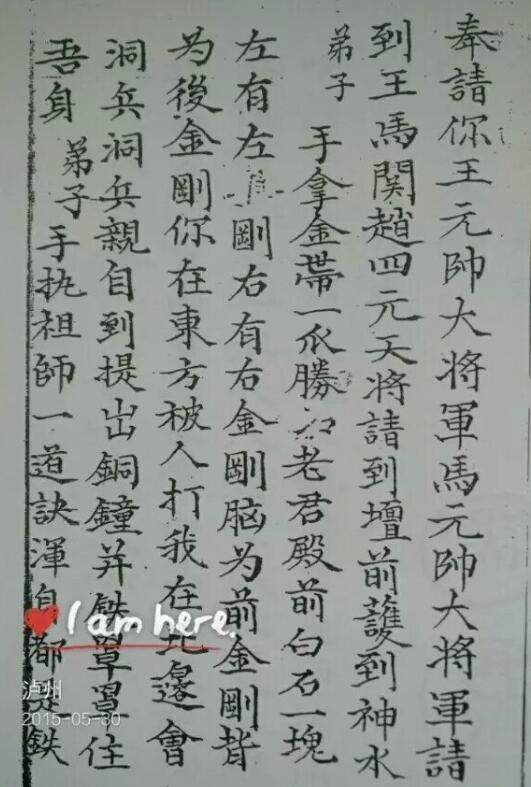 奉請你王元帥大將軍馬元帥大將軍請
到王馬関趙四元天將請到壇前護到神水
弟子 手拿金帶一爪勝 老君殿前白石一塊
左有左 剛右有右金剛脑为前金剛背
为後金剛你在東方被人打我在北邊會
洞兵洞兵親自到提出銅鐘并鉄罩罩住
吾身 弟子手执祖師一道訣渾身都是鉄
I am here.
泸州
2015-05-30